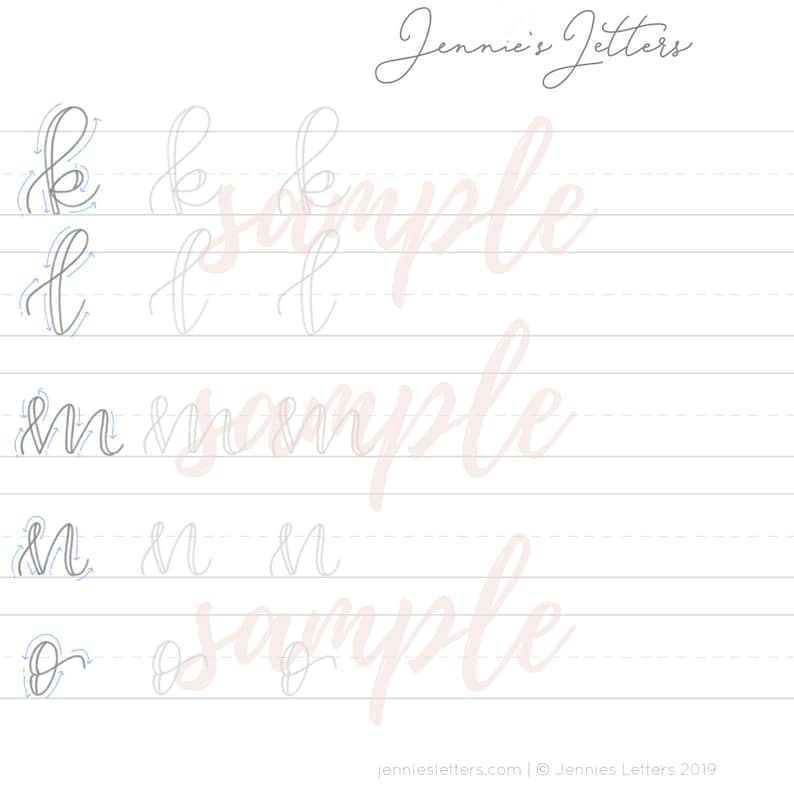 Jennie's Letters
k k k
sample
l l l
m m m
sample
n n n
sample
o o o
jenniesletters.com | © Jennies Letters 2019